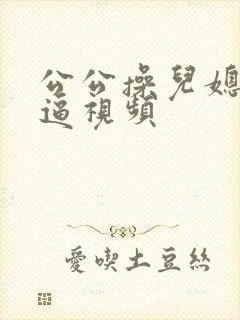 公公操兒媳
逼視頻
愛喫土豆絲